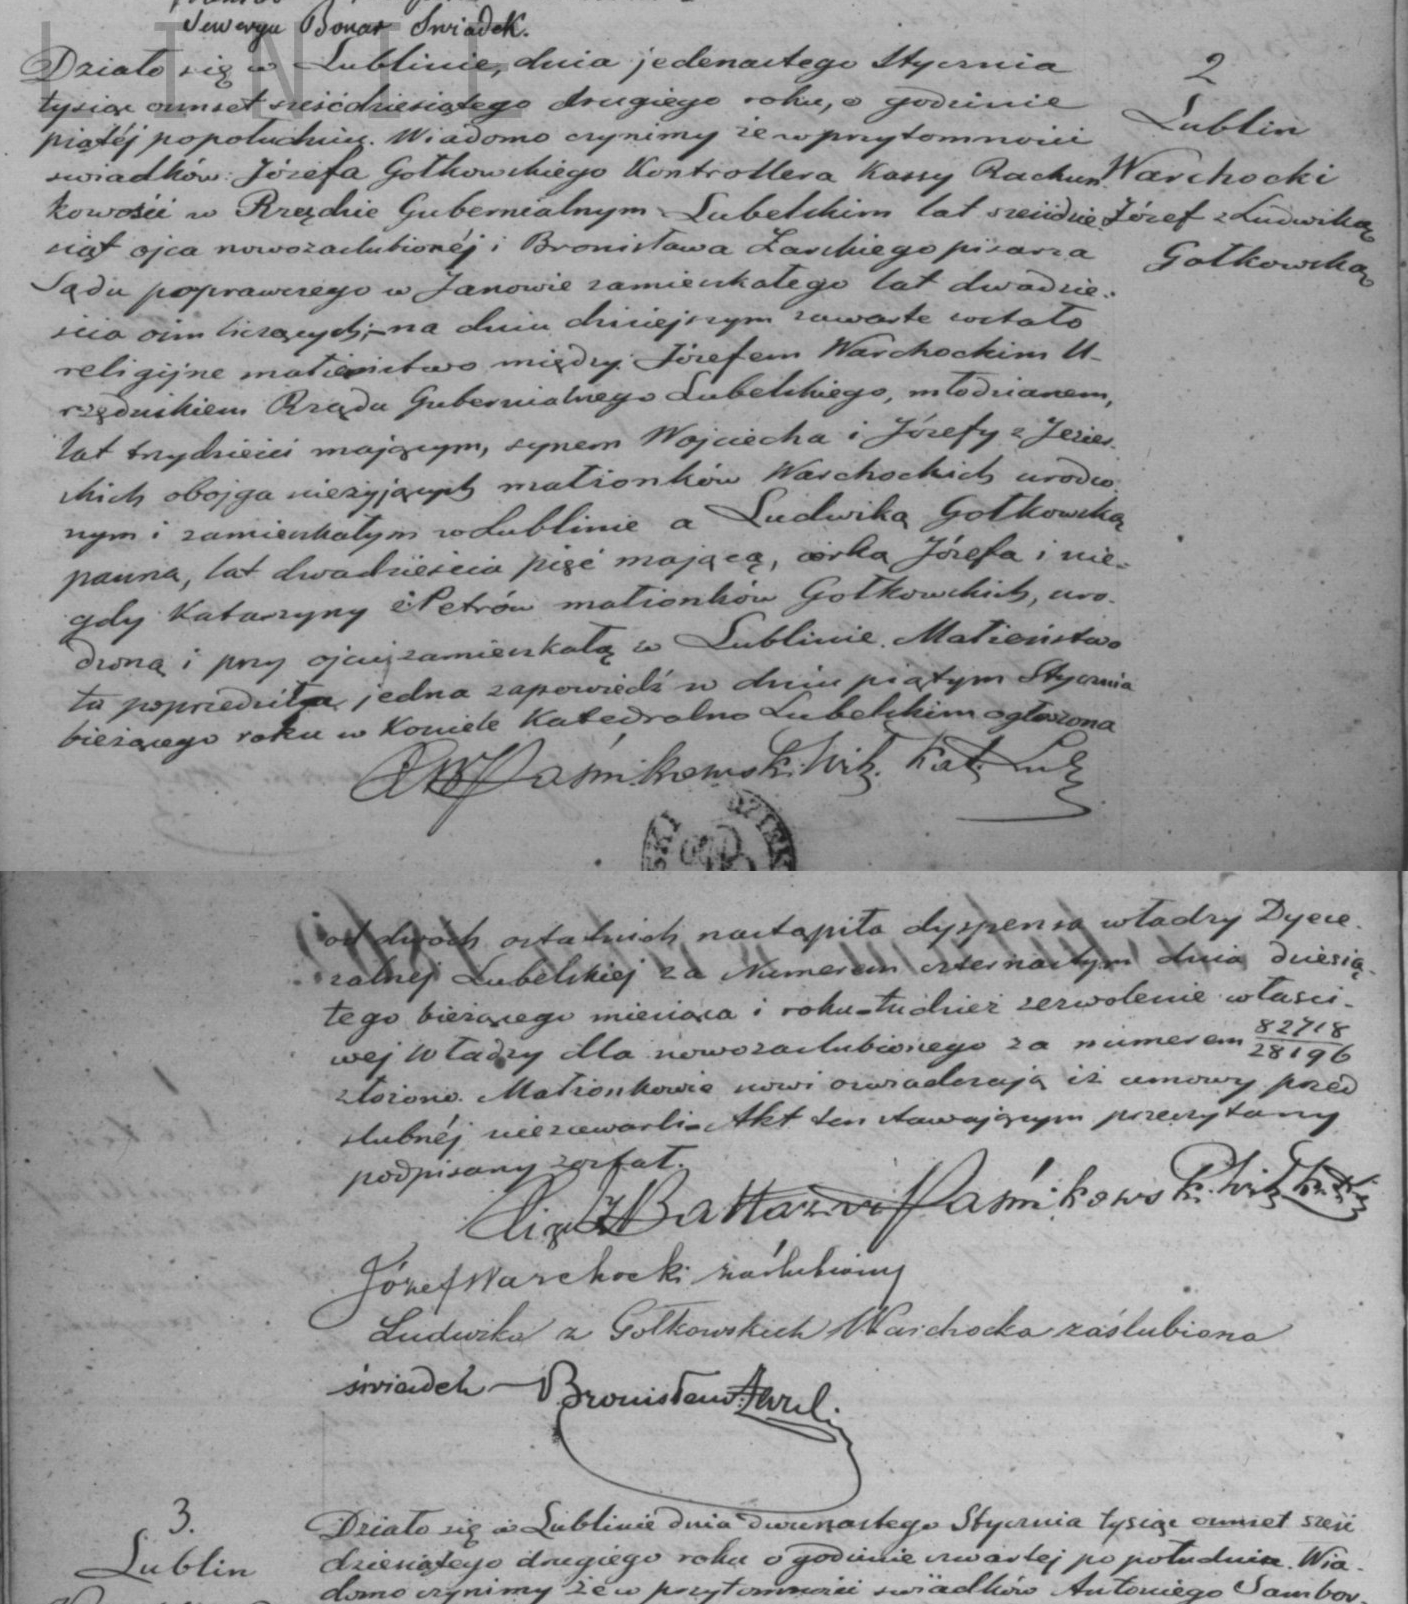 Seweryn Bonar Swiadek.
Działo się w Lublinie, dnia jedenastego Stycznia
tysiąc ośmset sześćdziesiątego drugiego roku, o godzinie
piątéj popołudniu. Wiadomo czynimy że w przytomności
swiadków: Józefa Gołkowskiego Kontrollera Kassy Rachun
kowości w Rządzie Gubernialnym Lubelskim lat sześćdzie
siąt ojca nowozaslubionéj i Bronisława Zarskiego pisarza
Sądu poprawczego w Janowie zamieszkałego lat dwadzie-
scia osm liczących; na dniu dzisiejszym zawarte zostało
religijne małżeństwo między: Józefem Warchockim U-
rzędnikiem Rządu Gubernialnego Lubelskiego, młodzianem,
lat trzydzieści mającym, synem Wojciecha i Józefy z Jezier-
skich obojga nieżyjących małżonków Warchockich urodzo
nym i zamieszkałym w Lublinie a Ludwiką Gołkowską
panną, lat dwadzieścia pięć mającą, córką Józefa i nie-
gdy Katarzyny z Petrów małżonków Gołkowskich, uro-
dzoną i przy ojcu zamieszkałą w Lublinie. Małżeństwo
to poprzedziła jedna zapowiedź w dniu piątym Stycznia
bieżącego roku w Kosciele Katedralno Lubelskim ogłoszona
Paśnikowski Wik. Kat. Lub
2
Lublin
Warchocki
Józef z Ludwiką
Gołkowską
od dwoch ostatnich nastąpiła dyspensa władzy Dyece-
zalnej Lubelskiej za Numerem czternastym dnia dziesią-
tego bieżącego miesiąca i roku tudzież zezwolenie właści-
wej Władzy dla nowozaslubionego za numerem 82718/28196
złożono. Małżonkowie nowi oswiadczają iż umowy przed
slubnéj niezawarli. Akt ten stawającym przeczytany
podpisany został.
Xiądz Baltazar Paśnikowski Wik. Kat.
Józef Warchocki zaślubiony
Ludwika z Gołkowskich Warchocka zaślubiona
świadek Bronisław
3.
Lublin
Działo się w Lublinie dnia dwunastego Stycznia tysiąc ośmset sześć
dziesiątego drugiego roku o godzinie czwartej po południu. Wia-
domo czynimy że w przytomności swiadków Antoniego Sambor-